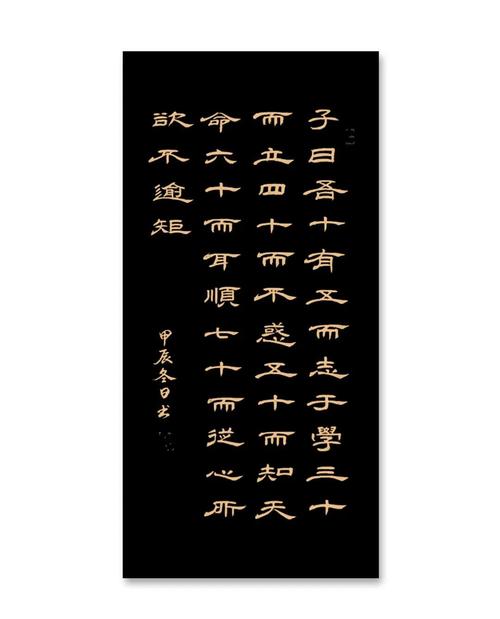 子曰吾十有五而志于學三十
而立四十而不惑五十而知天
命六十而耳順七十而從心所
欲不逾矩
甲辰冬日书